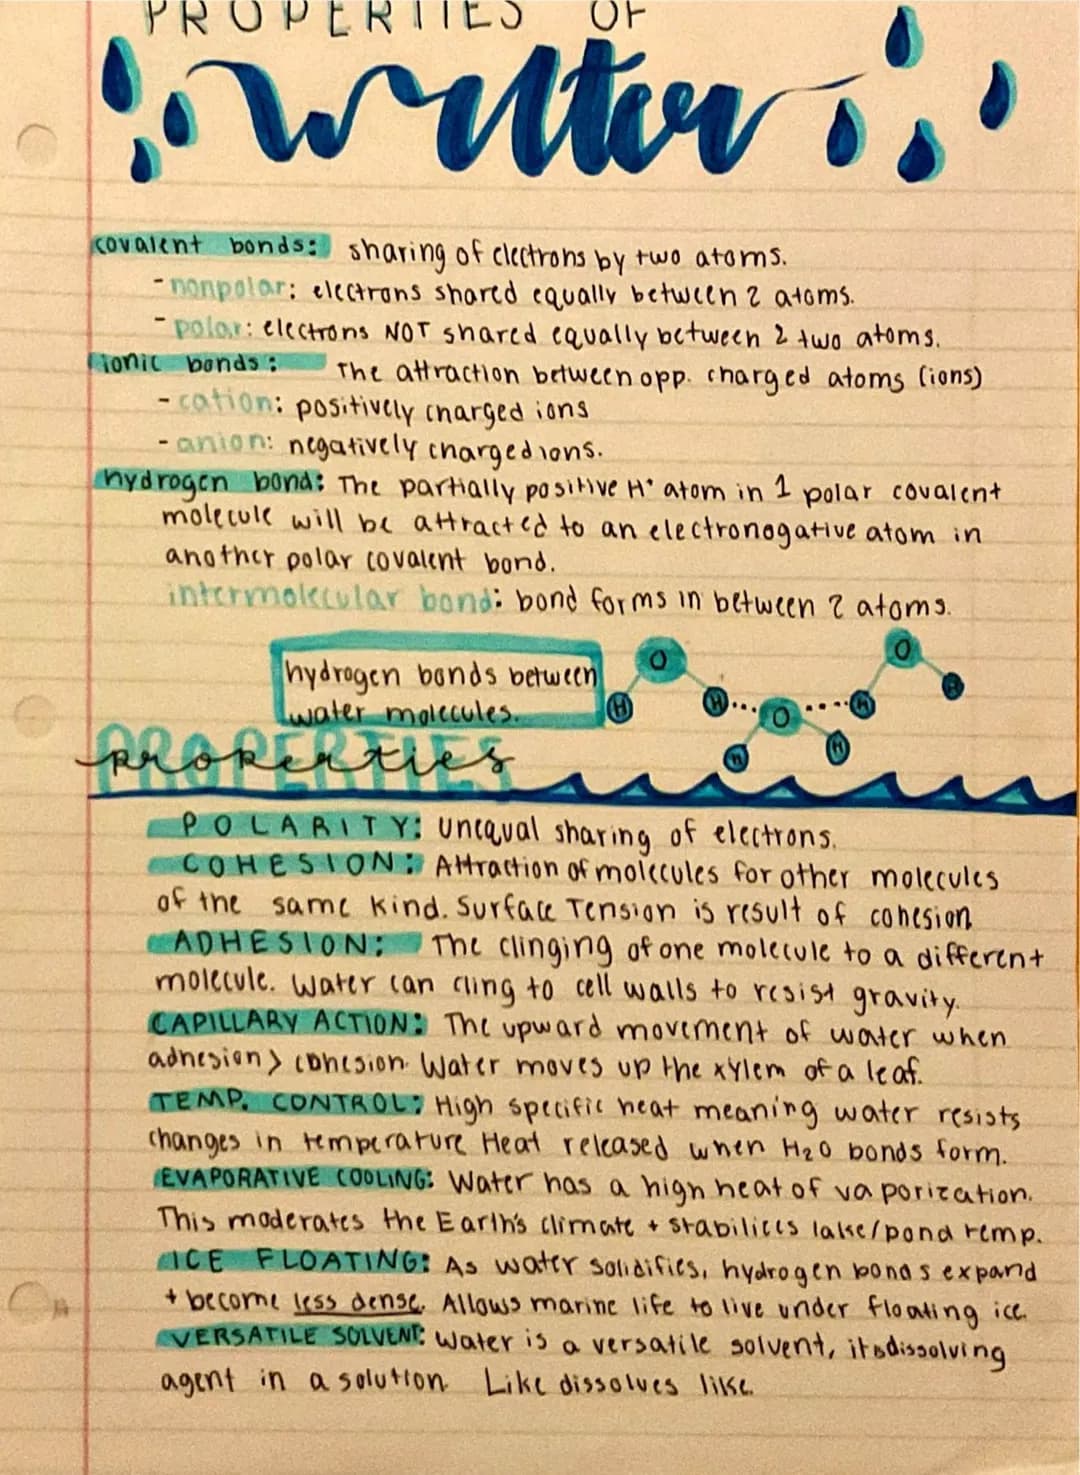 PROPERTIES OF
water
covalent bonds: sharing of electrons by two atoms.
- nonpolar: electrons shared equally between 2 atoms.
- polar: electrons NOT shared equally between 2 two atoms.
ionic bonds: The attraction between opp. charged atoms (ions)
- cation: positively charged ions
- anion: negatively charged ions.
hydrogen bond: The partially positive H⁺ atom in 1 polar covalent
molecule will be attracted to an electronogative atom in
another polar covalent bond.
intermolecular bond: bond forms in between 2 atoms.
hydrogen bonds between
water molecules.
O
H
H
O
H
H
H
O
H
PROPERTIES
properties
POLARITY: Unequal sharing of electrons.
COHESION: Attraction of molecules for other molecules
of the same kind. Surface Tension is result of cohesion
ADHESION: The clinging of one molecule to a different
molecule. Water can cling to cell walls to resist gravity.
CAPILLARY ACTION: The upward movement of water when
adhesion > cohesion. Water moves up the xylem of a leaf.
TEMP. CONTROL: High specific heat meaning water resists
changes in temperature Heat released when H₂O bonds form.
EVAPORATIVE COOLING: Water has a high heat of vaporization.
This moderates the Earth's climate + stabilices lake/pond temp.
ICE FLOATING: As water solidifies, hydrogen bonds expand
+ become less dense. Allows marine life to live under floating ice.
VERSATILE SOLVENT: Water is a versatile solvent, its dissolving
agent in a solution. Like dissolves like.